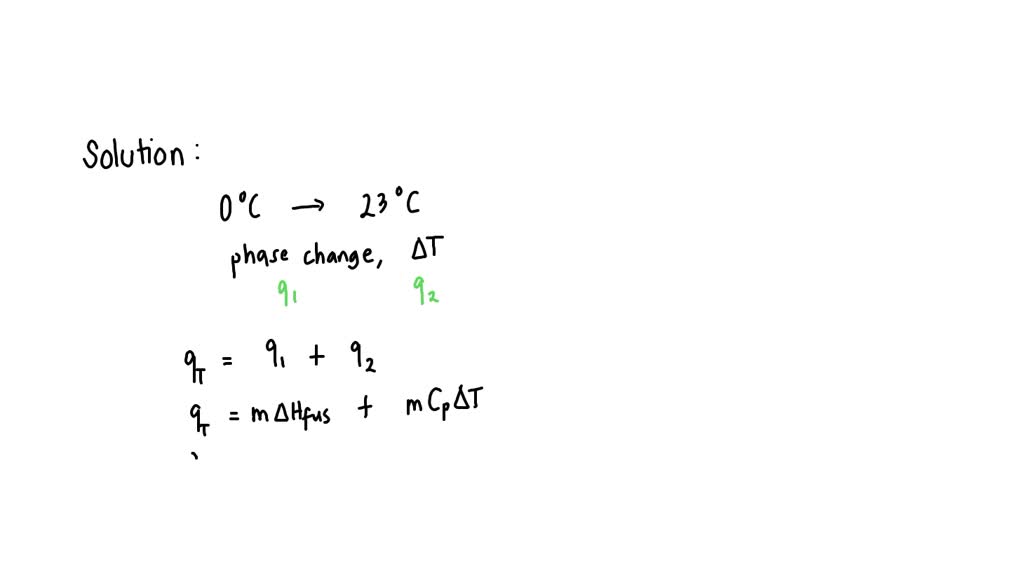 Solution:
0°C → 23°C
phase change, ΔT
q₁ q₂
qT = q₁ + q₂
qT = mΔHfus + mCpΔT